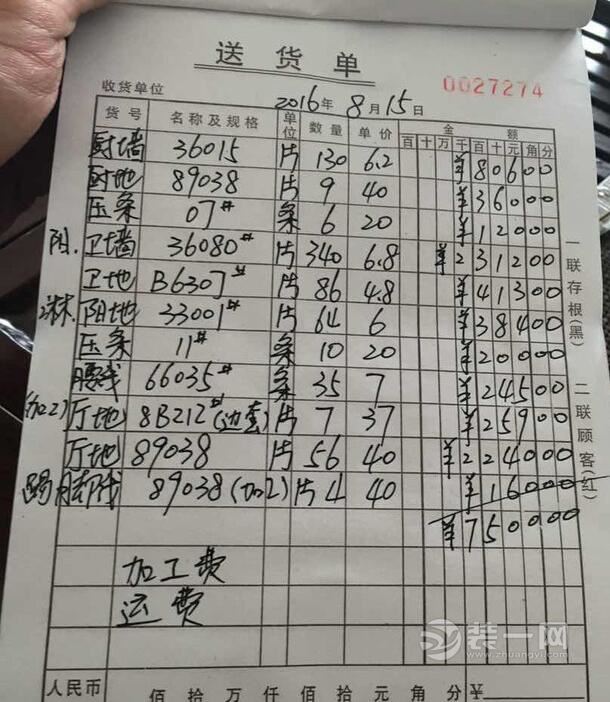 送货单
收货单位
0027274
2016年8月15日
货号 名称及规格 单位 数量 单价 金额
百 十 万 千 百 十 元 角 分
厨墙 36015 片 130 6.2 ¥80600
厨地 89038 片 9 40 ¥36000
压条 07# 条 6 20 ¥12000
阳.卫墙 36080# 片 340 6.8 ¥231200
卫地 B6307# 片 86 4.8 ¥41300
阳地 33001# 片 64 6 ¥38400
压条 11# 条 10 20 ¥20000
腰线 66035# 条 35 7 ¥24500
(加工)厅地 8B212#(边套) 片 7 37 ¥25900
厅地 89038 片 56 40 ¥224000
踢脚线 89038(加工) 片 4 40 ¥16000
¥750000
加工费
运费
人民币 佰 拾 万 仟 佰 拾 元 角 分 ¥
一联存根(黑) 二联顾客(红)
装一网
www.zhuangyi.com